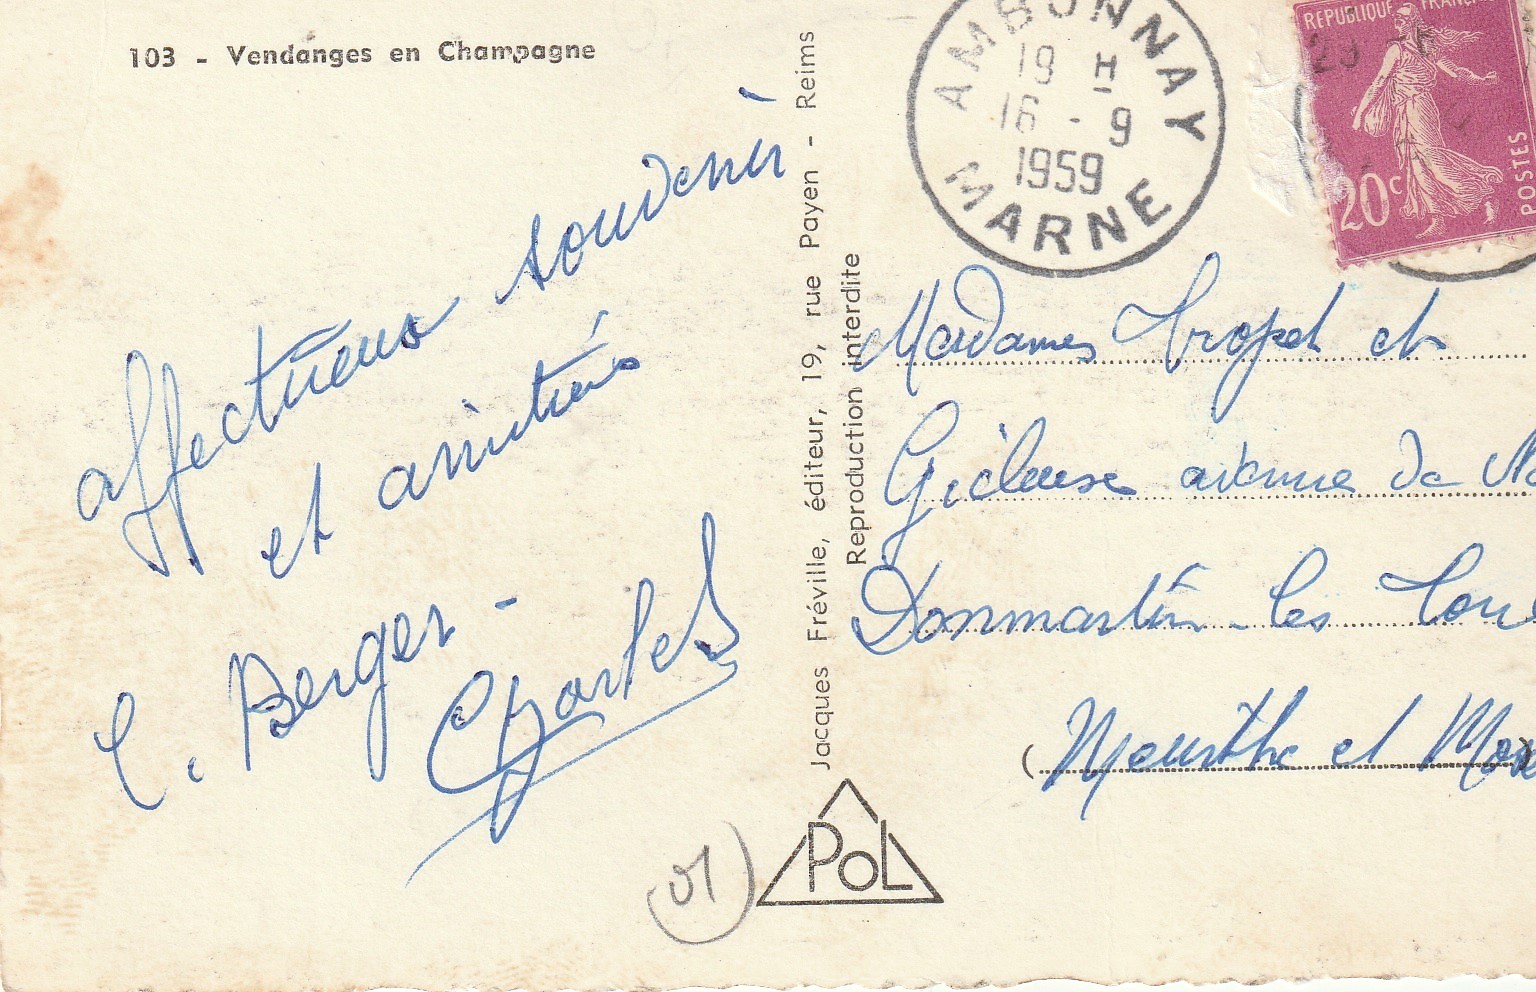 103 - Vendanges en Champagne
affectueux souvenir
et amitiés
C. Berger -
Charles
Jacques Fréville, éditeur, 19, rue Payen - Reims
Reproduction interdite
PoL
AMBONNAY
19 H
16 - 9
1959
MARNE
REPUBLIQUE FRANÇAI
20c
POSTES
Mesdames Tropet et
avenue de
Donmartin-les Toul
(Meurthe et Mos